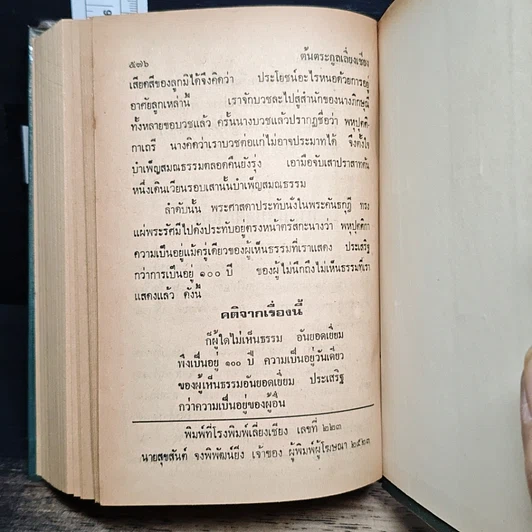 ๕๗๖ ต้นตระกูลเลี่ยงเซียง
เสียดสีของลูกมิได้จึงคิดว่า ประโยชน์อะไรหนอด้วยการอยู่
อาศัยลูกเหล่านี้ เราจักบวชละไปสู่สำนักของนางภิกษุณี
ทั้งหลายขอบวชแล้ว ครั้นนางบวชแล้วปรากฏชื่อว่า พหุปุตติ
กาเถรี นางคิดว่าเราบวชต่อแก่ไม่อาจประมาทได้ จึงตั้งใจ
บำเพ็ญสมณธรรมตลอดคืนยังรุ่ง เอามือจับเสาปราสาทต้น
หนึ่งเดินเวียนรอบเสานั้นบำเพ็ญสมณธรรม
ลำดับนั้น พระศาสดาประทับนั่งในพระคันธกุฎี ทรง
แผ่พระรัศมีไปดังประทับอยู่ตรงหน้าตรัสกะนางว่า พหุปุตติกา
ความเป็นอยู่แม้ครู่เดียวของผู้เห็นธรรมที่เราแสดง ประเสริฐ
กว่าการเป็นอยู่ ๑๐๐ ปี ของผู้ไม่นึกถึงไม่เห็นธรรมที่เรา
แสดงแล้ว ดังนี้
คติจากเรื่องนี้
ก็ผู้ใดไม่เห็นธรรม อันยอดเยี่ยม
พึงเป็นอยู่ ๑๐๐ ปี ความเป็นอยู่วันเดียว
ของผู้เห็นธรรมอันยอดเยี่ยม ประเสริฐ
กว่าความเป็นอยู่ของผู้อื่น
พิมพ์ที่โรงพิมพ์เลี่ยงเซียง เลขที่ ๒๒๓
นายสุขสันต์ จงพิพัฒน์ยิ่ง เจ้าของ ผู้พิมพ์ผู้โฆษณา ๒๕๒๓